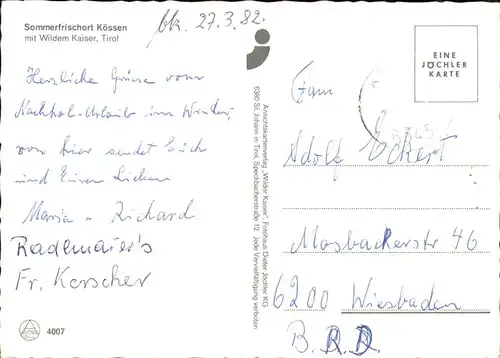 Sommerfrischort Kössen
mit Wildem Kaiser, Tirol
bk. 27.3.82.
Herzliche Grüsse vom
Nachhol-Urlaub im Winter,
von hier sendet Euch
und Euren Lieben
Maria u. Richard
Rademaier's
Fr. Kerscher
4007
Ansichtskartenverlag „Wilder Kaiser" Fotohaus Dieter Jöchler KG
6380 St. Johann in Tirol, Speckbacherstraße 12. Jede Vervielfältigung verboten
EINE
JÖCHLER
KARTE
Fam
Adolf Eckert
Mosbacherstr 46
6200 Wiesbaden
B.R.D.